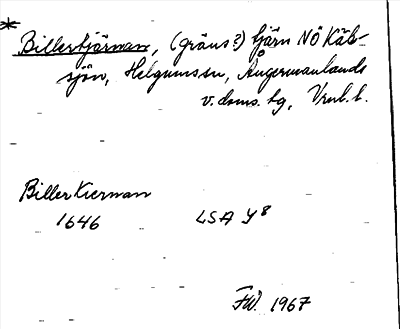 * Billertjärnan, (gräns?) tjärn NÖ Käb-
sjön, Helgums sn, Ångermanlands
v. doms. hg, Vrnl. l.
BillerKiernan
1646 LSA Y8
FW. 1967